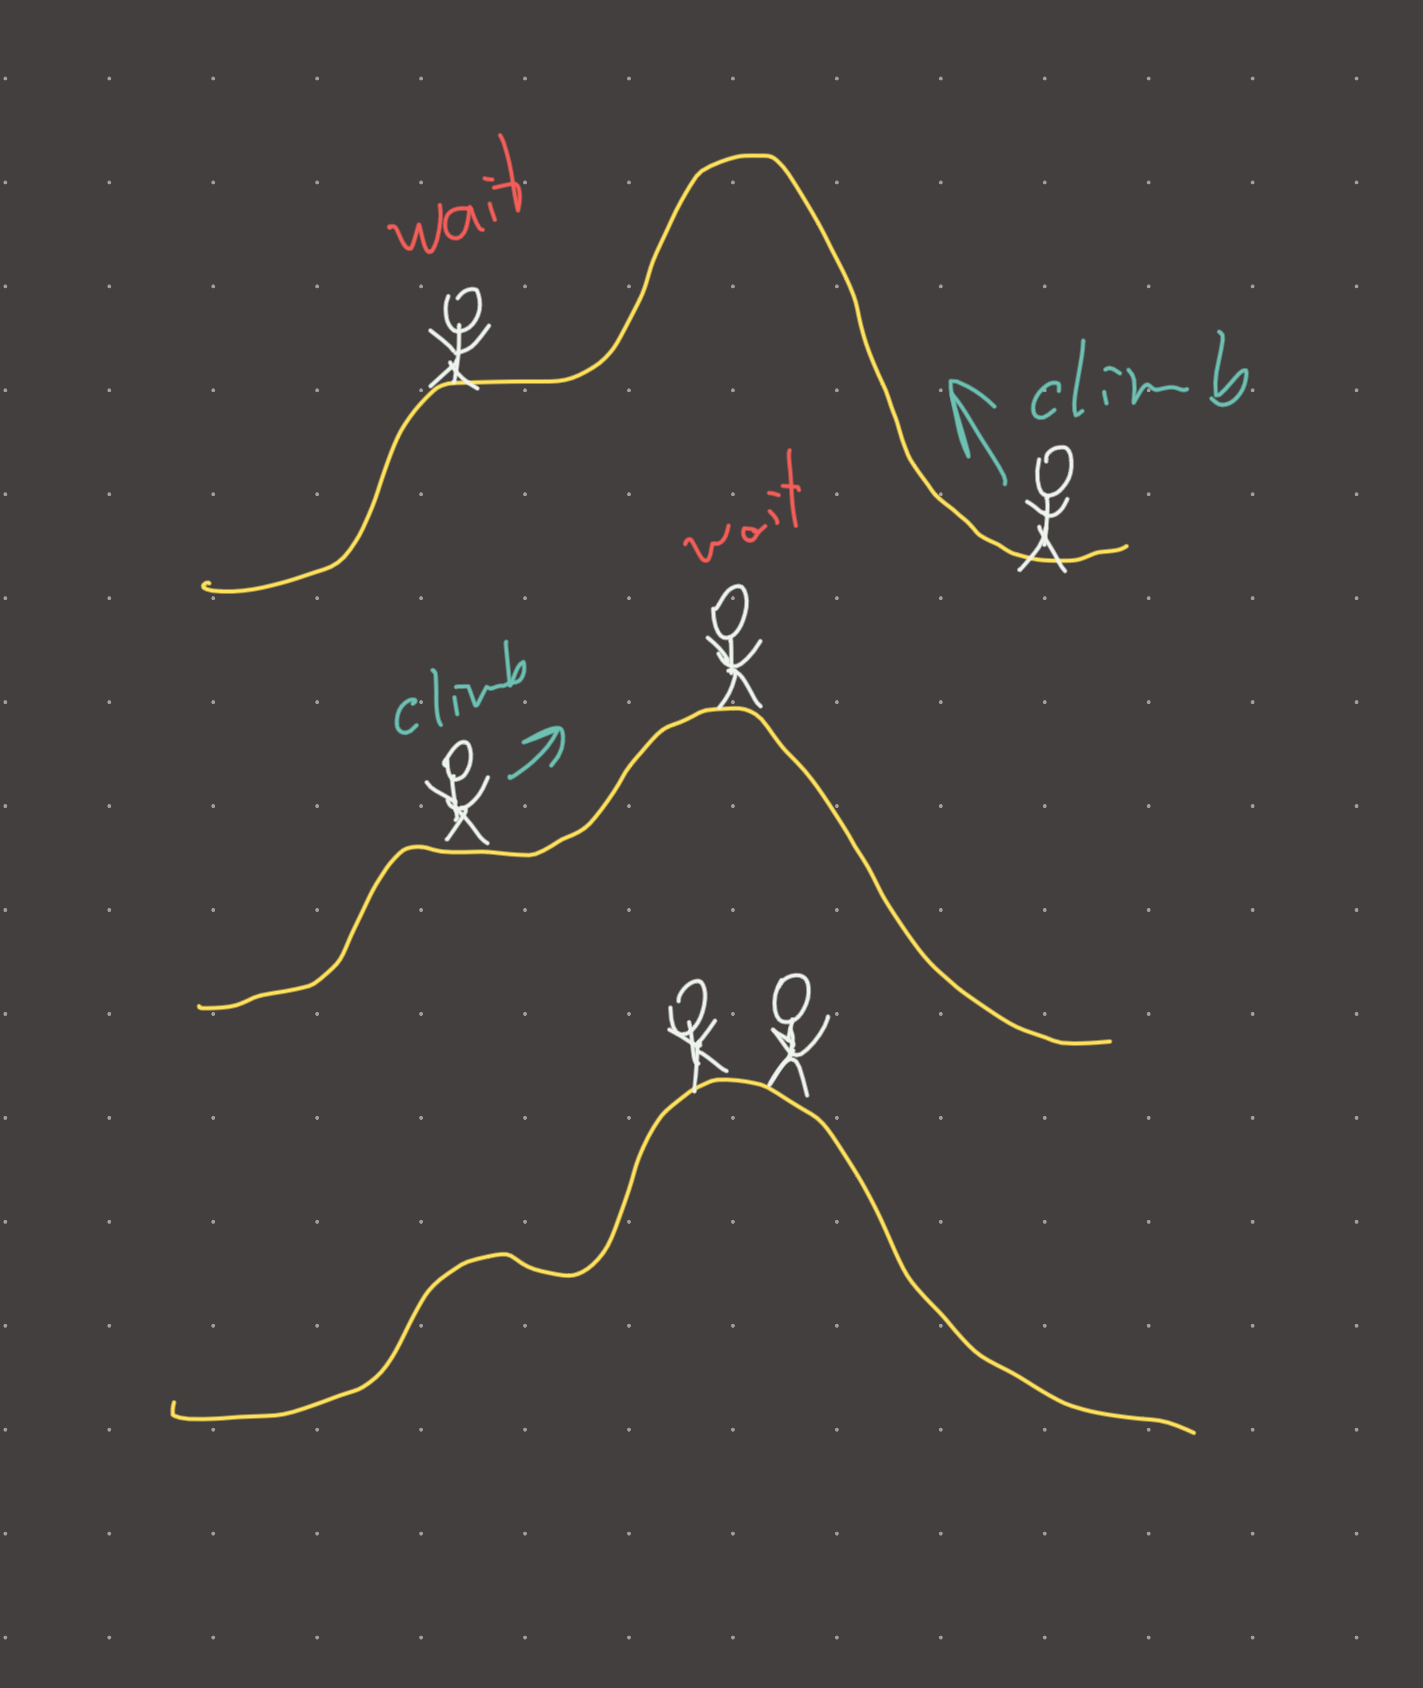 wait
climb
wait
climb